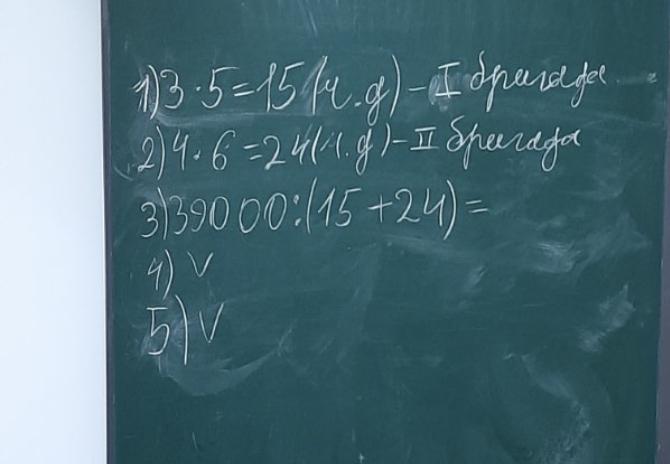 1) 3 · 5 = 15 (ч. д) - I бригада
2) 4 · 6 = 24 (ч. д) - II бригада
3) 39000 : (15 + 24) =
4) V
5) V